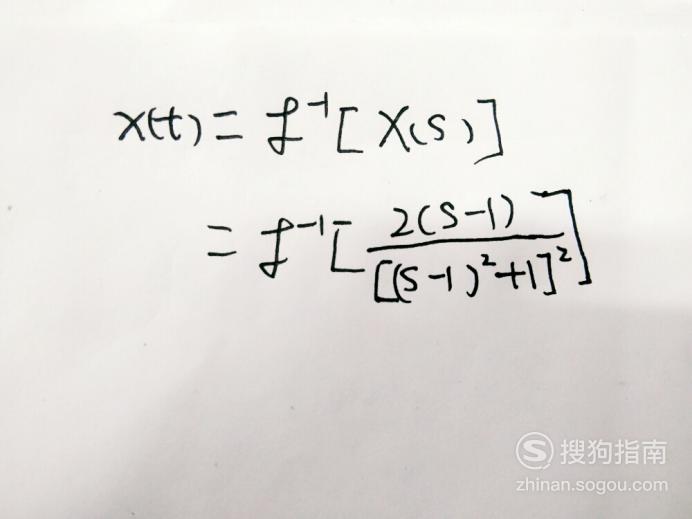 x(t) = ℒ⁻¹[X(s)]
= ℒ⁻¹[2(s-1)/[(s-1)²+1]²]
搜狗指南
zhinan.sogou.com